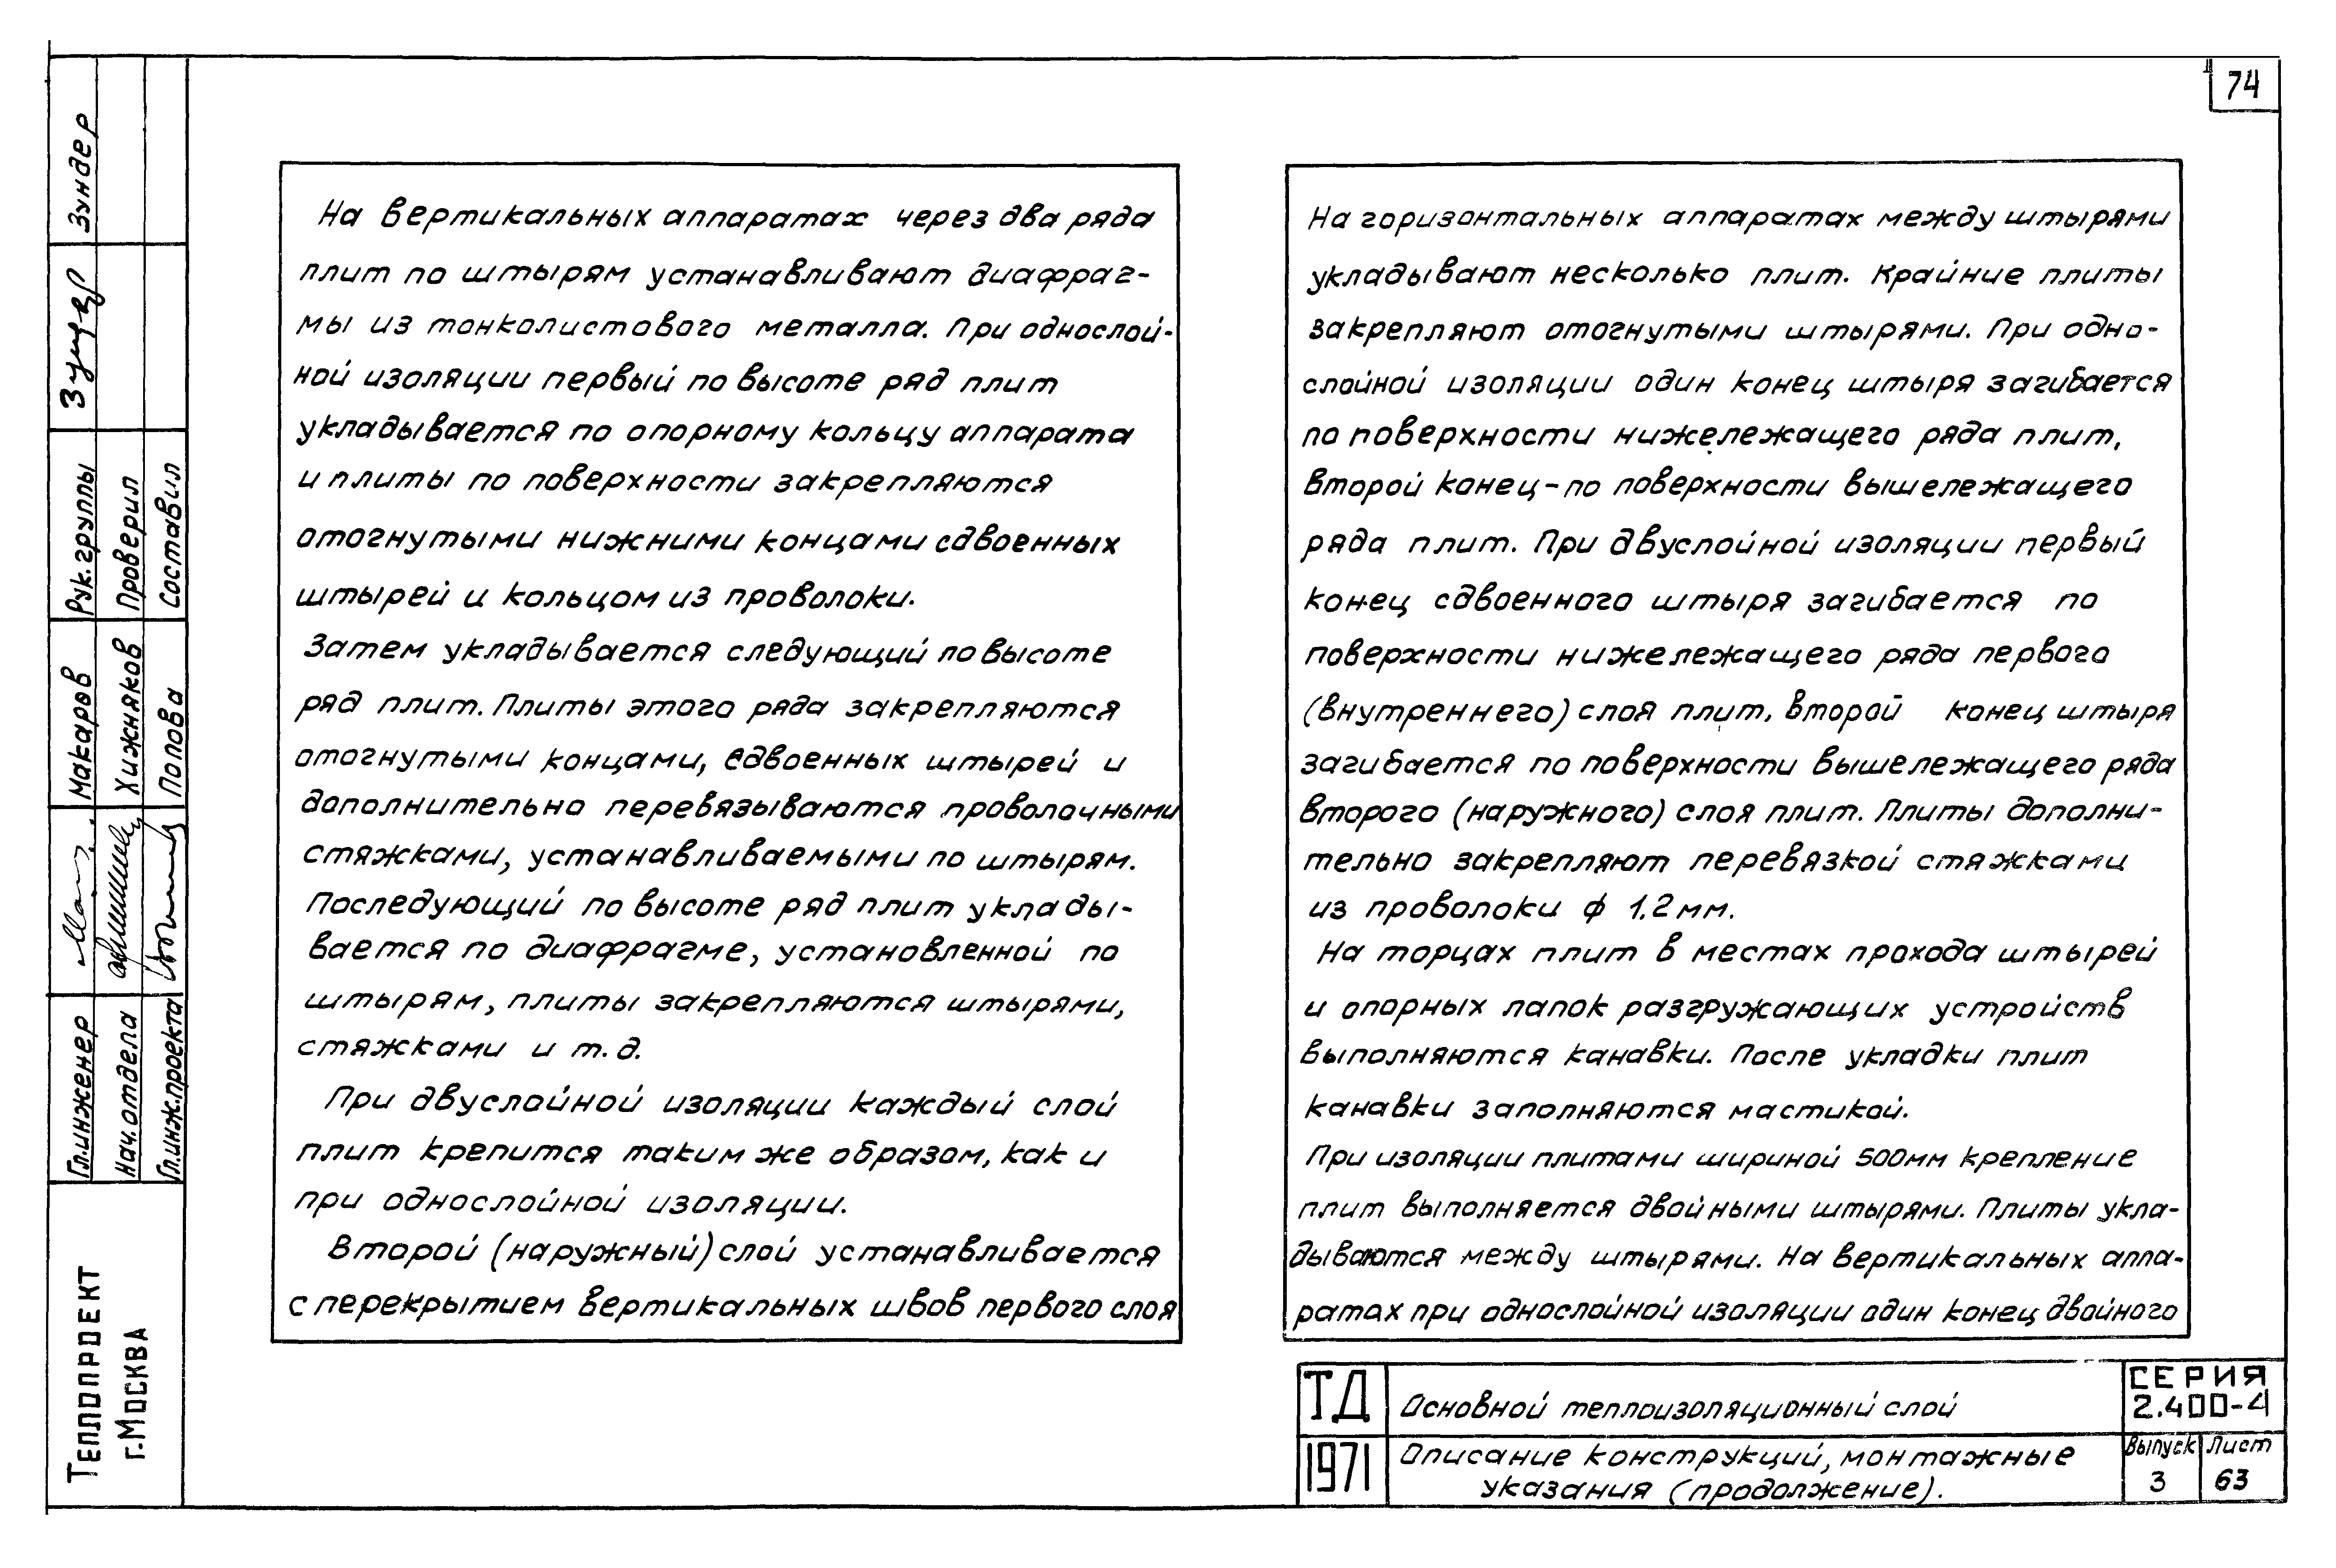 74
На вертикальных аппаратах через два ряда
плит по штырям устанавливают диафраг-
мы из тонколистового металла. При однослой-
ной изоляции первый по высоте ряд плит
укладывается по опорному кольцу аппарата
и плиты по поверхности закрепляются
отогнутыми нижними концами сдвоенных
штырей и кольцом из проволоки.
Затем укладывается следующий по высоте
ряд плит. Плиты этого ряда закрепляются
отогнутыми концами, сдвоенных штырей и
дополнительно перевязываются проволочными
стяжками, устанавливаемыми по штырям.
Последующий по высоте ряд плит уклады-
вается по диафрагме, установленной по
штырям, плиты закрепляются штырями,
стяжками и т.д.
При двуслойной изоляции каждый слой
плит крепится таким же образом, как и
при однослойной изоляции.
Второй (наружный) слой устанавливается
с перекрытием вертикальных швов первого слоя
На горизонтальных аппаратах между штырями
укладывают несколько плит. Крайние плиты
закрепляют отогнутыми штырями. При одно-
слойной изоляции один конец штыря загибается
по поверхности нижележащего ряда плит,
второй конец - по поверхности вышележащего
ряда плит. При двуслойной изоляции первый
конец сдвоенного штыря загибается по
поверхности нижележащего ряда первого
(внутреннего) слоя плит, второй конец штыря
загибается по поверхности вышележащего ряда
второго (наружного) слоя плит. Плиты дополни-
тельно закрепляют перевязкой стяжками
из проволоки ф 1.2 мм.
На торцах плит в местах прохода штырей
и опорных лапок разгружающих устройств
выполняются канавки. После укладки плит
канавки заполняются мастикой.
При изоляции плитами шириной 500мм крепление
плит выполняется двойными штырями. Плиты укла-
дываются между штырями. На вертикальных аппа-
ратах при однослойной изоляции один конец двойного
ТД
1971
Основной теплоизоляционный слой
Описание конструкций, монтажные
указания (продолжение).
СЕРИЯ
2.400-4
Выпуск Лист
3 63
Теплопроект
г.Москва
Гл.инженер Макаров Рук.группы Зундер
Нач.отдела Хижняков Проверил
Гл.инж.проекта Попова Составил